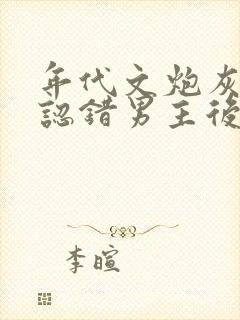 年代文炮灰
認錯男主後
李暄